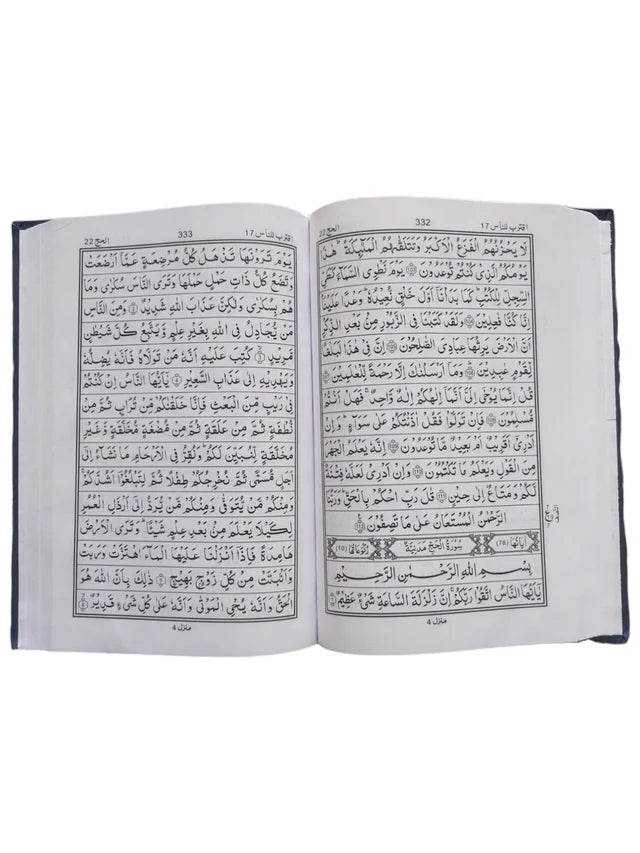 اقترب للناس 17
332
لَا يَحْزُنُهُمُ الْفَزَعُ الْاَكْبَرُ وَتَتَلَقّٰىهُمُ الْمَلٰٓئِكَةُ ؕ هٰذَا
يَوْمُكُمُ الَّذِیْ كُنْتُمْ تُوْعَدُوْنَ ﴿۱۰۳﴾ یَوْمَ نَطْوِی السَّمَآءَ كَطَیِّ
السِّجِلِّ لِلْكُتُبِ ؕ كَمَا بَدَاْنَاۤ اَوَّلَ خَلْقٍ نُّعِیْدُهٗ ؕ وَعْدًا عَلَیْنَا ؕ
اِنَّا كُنَّا فٰعِلِیْنَ ﴿۱۰۴﴾ وَلَقَدْ كَتَبْنَا فِی الزَّبُوْرِ مِنْۢ بَعْدِ الذِّكْرِ
اَنَّ الْاَرْضَ یَرِثُهَا عِبَادِیَ الصّٰلِحُوْنَ ﴿۱۰۵﴾ اِنَّ فِیْ هٰذَا لَبَلٰغًا
لِّقَوْمٍ عٰبِدِیْنَ ﴿۱۰۶﴾ وَمَاۤ اَرْسَلْنٰكَ اِلَّا رَحْمَةً لِّلْعٰلَمِیْنَ ﴿۱۰۷﴾
قُلْ اِنَّمَا یُوْحٰۤی اِلَیَّ اَنَّمَاۤ اِلٰهُكُمْ اِلٰهٌ وَّاحِدٌ ۚ فَهَلْ اَنْتُمْ
مُّسْلِمُوْنَ ﴿۱۰۸﴾ فَاِنْ تَوَلَّوْا فَقُلْ اٰذَنْتُكُمْ عَلٰی سَوَآءٍ ؕ وَاِنْ
اَدْرِیْۤ اَقَرِیْبٌ اَمْ بَعِیْدٌ مَّا تُوْعَدُوْنَ ﴿۱۰۹﴾ اِنَّهٗ یَعْلَمُ الْجَهْرَ
مِنَ الْقَوْلِ وَیَعْلَمُ مَا تَكْتُمُوْنَ ﴿۱۱۰﴾ وَاِنْ اَدْرِیْ لَعَلَّهٗ فِتْنَةٌ
لَّكُمْ وَمَتَاعٌ اِلٰی حِیْنٍ ﴿۱۱۱﴾ قٰلَ رَبِّ احْكُمْ بِالْحَقِّ ؕ وَرَبُّنَا
الرَّحْمٰنُ الْمُسْتَعَانُ عَلٰی مَا تَصِفُوْنَ ﴿۱۱۲﴾
اٰیَاتُهَا (78) سُوْرَةُ الْحَجِّ مَدَنِیَّةٌ رُكُوْعَاتُهَا (10)
بِسْمِ اللّٰهِ الرَّحْمٰنِ الرَّحِیْمِ
یٰۤاَیُّهَا النَّاسُ اتَّقُوْا رَبَّكُمْ ۚ اِنَّ زَلْزَلَةَ السَّاعَةِ شَیْءٌ عَظِیْمٌ ﴿۱﴾
منزل 4
اقترب للناس 17
333
الحج 22
یَوْمَ تَرَوْنَهَا تَذْهَلُ كُلُّ مُرْضِعَةٍ عَمَّاۤ اَرْضَعَتْ
وَتَضَعُ كُلُّ ذَاتِ حَمْلٍ حَمْلَهَا وَتَرَی النَّاسَ سُكٰرٰی وَمَا
هُمْ بِسُكٰرٰی وَلٰكِنَّ عَذَابَ اللّٰهِ شَدِیْدٌ ﴿۲﴾ وَمِنَ النَّاسِ
مَنْ یُّجَادِلُ فِی اللّٰهِ بِغَیْرِ عِلْمٍ وَّیَتَّبِعُ كُلَّ شَیْطٰنٍ
مَّرِیْدٍ ﴿۳﴾ كُتِبَ عَلَیْهِ اَنَّهٗ مَنْ تَوَلَّاهُ فَاَنَّهٗ یُضِلُّهٗ
وَیَهْدِیْهِ اِلٰی عَذَابِ السَّعِیْرِ ﴿۴﴾ یٰۤاَیُّهَا النَّاسُ اِنْ كُنْتُمْ
فِیْ رَیْبٍ مِّنَ الْبَعْثِ فَاِنَّا خَلَقْنٰكُمْ مِّنْ تُرَابٍ ثُمَّ مِنْ
نُّطْفَةٍ ثُمَّ مِنْ عَلَقَةٍ ثُمَّ مِنْ مُّضْغَةٍ مُّخَلَّقَةٍ وَّغَیْرِ
مُخَلَّقَةٍ لِّنُبَیِّنَ لَكُمْ ؕ وَنُقِرُّ فِی الْاَرْحَامِ مَا نَشَآءُ اِلٰۤی
اَجَلٍ مُّسَمًّی ثُمَّ نُخْرِجُكُمْ طِفْلًا ثُمَّ لِتَبْلُغُوْۤا اَشُدَّكُمْ ۚ
وَمِنْكُمْ مَّنْ یُّتَوَفّٰی وَمِنْكُمْ مَّنْ یُّرَدُّ اِلٰۤی اَرْذَلِ الْعُمُرِ
لِكَیْلَا یَعْلَمَ مِنْۢ بَعْدِ عِلْمٍ شَیْئًا ؕ وَتَرَی الْاَرْضَ
هَامِدَةً فَاِذَاۤ اَنْزَلْنَا عَلَیْهَا الْمَآءَ اهْتَزَّتْ وَرَبَتْ
وَاَنْۢبَتَتْ مِنْ كُلِّ زَوْجٍۭ بَهِیْجٍ ﴿۵﴾ ذٰلِكَ بِاَنَّ اللّٰهَ هُوَ
الْحَقُّ وَاَنَّهٗ یُحْیِ الْمَوْتٰی وَاَنَّهٗ عَلٰی كُلِّ شَیْءٍ قَدِیْرٌ ﴿۶﴾
منزل 4